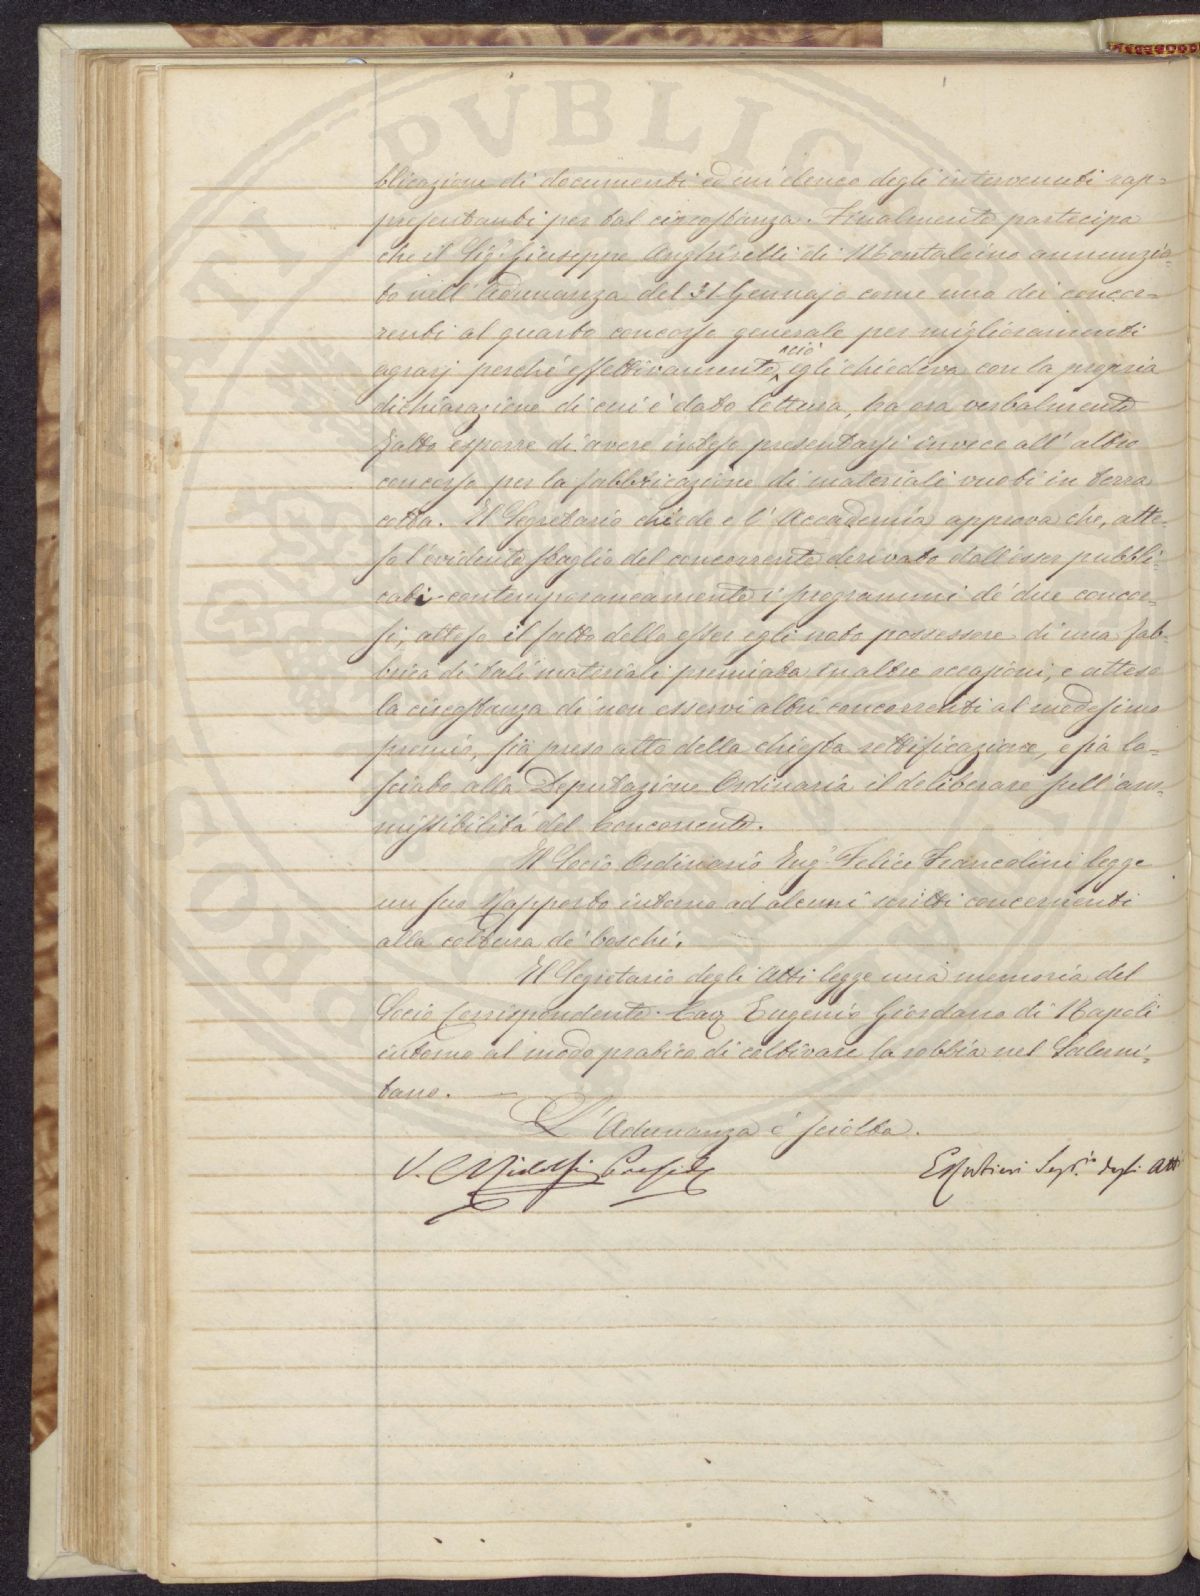 blicazione di documenti ed un'elenco degli intervenuti rap=
presentanti per tal circostanza. Finalmente partecipa
che il Sigr Giuseppe Anghirelli di Montalcino annunzia=
to nell'Adunanza del 31 Gennajo come uno dei concor=
renti al quarto concorso generale per miglioramenti
agrarj perché effettivamente ciò egli chiedeva con la propria
dichiarazione di cui è dato lettura, ha ora verbalmente
fatto esporre di avere inteso presentarsi invece all'altro
concorso per la fabbricazione di materiali vuoti in terra
cotta. Il Segretario chiede e l'Accademia approva che, atte=
so l'evidente sbaglio del concorrente derivato dall'esser pubbli=
cati contemporaneamente i programmi de' due concor=
si, atteso il fatto dello esser egli noto possessore di una fab=
brica di tali materiali premiata in altre occasioni, e atteso
la circostanza di non esservi altri concorrenti al medesimo
premio, sia preso atto della chiesta rettificazione, e sia la=
sciato alla Deputazione Ordinaria il deliberare sull'am=
missibilità del Concorrente.
Il Socio Ordinario Ingr Felice Francolini legge
un suo Rapporto intorno ad alcuni scritti concernenti
alla coltura de' boschi.
Il Segretario degli Atti legge una memoria del
Socio Corrispondente Cav Eugenio Giordano di Napoli
intorno al modo pratico di coltivare la robbia nel Salerni=
tano.
L'Adunanza è sciolta.
V. C Ridolfi Preside
Segr.io degli Atti